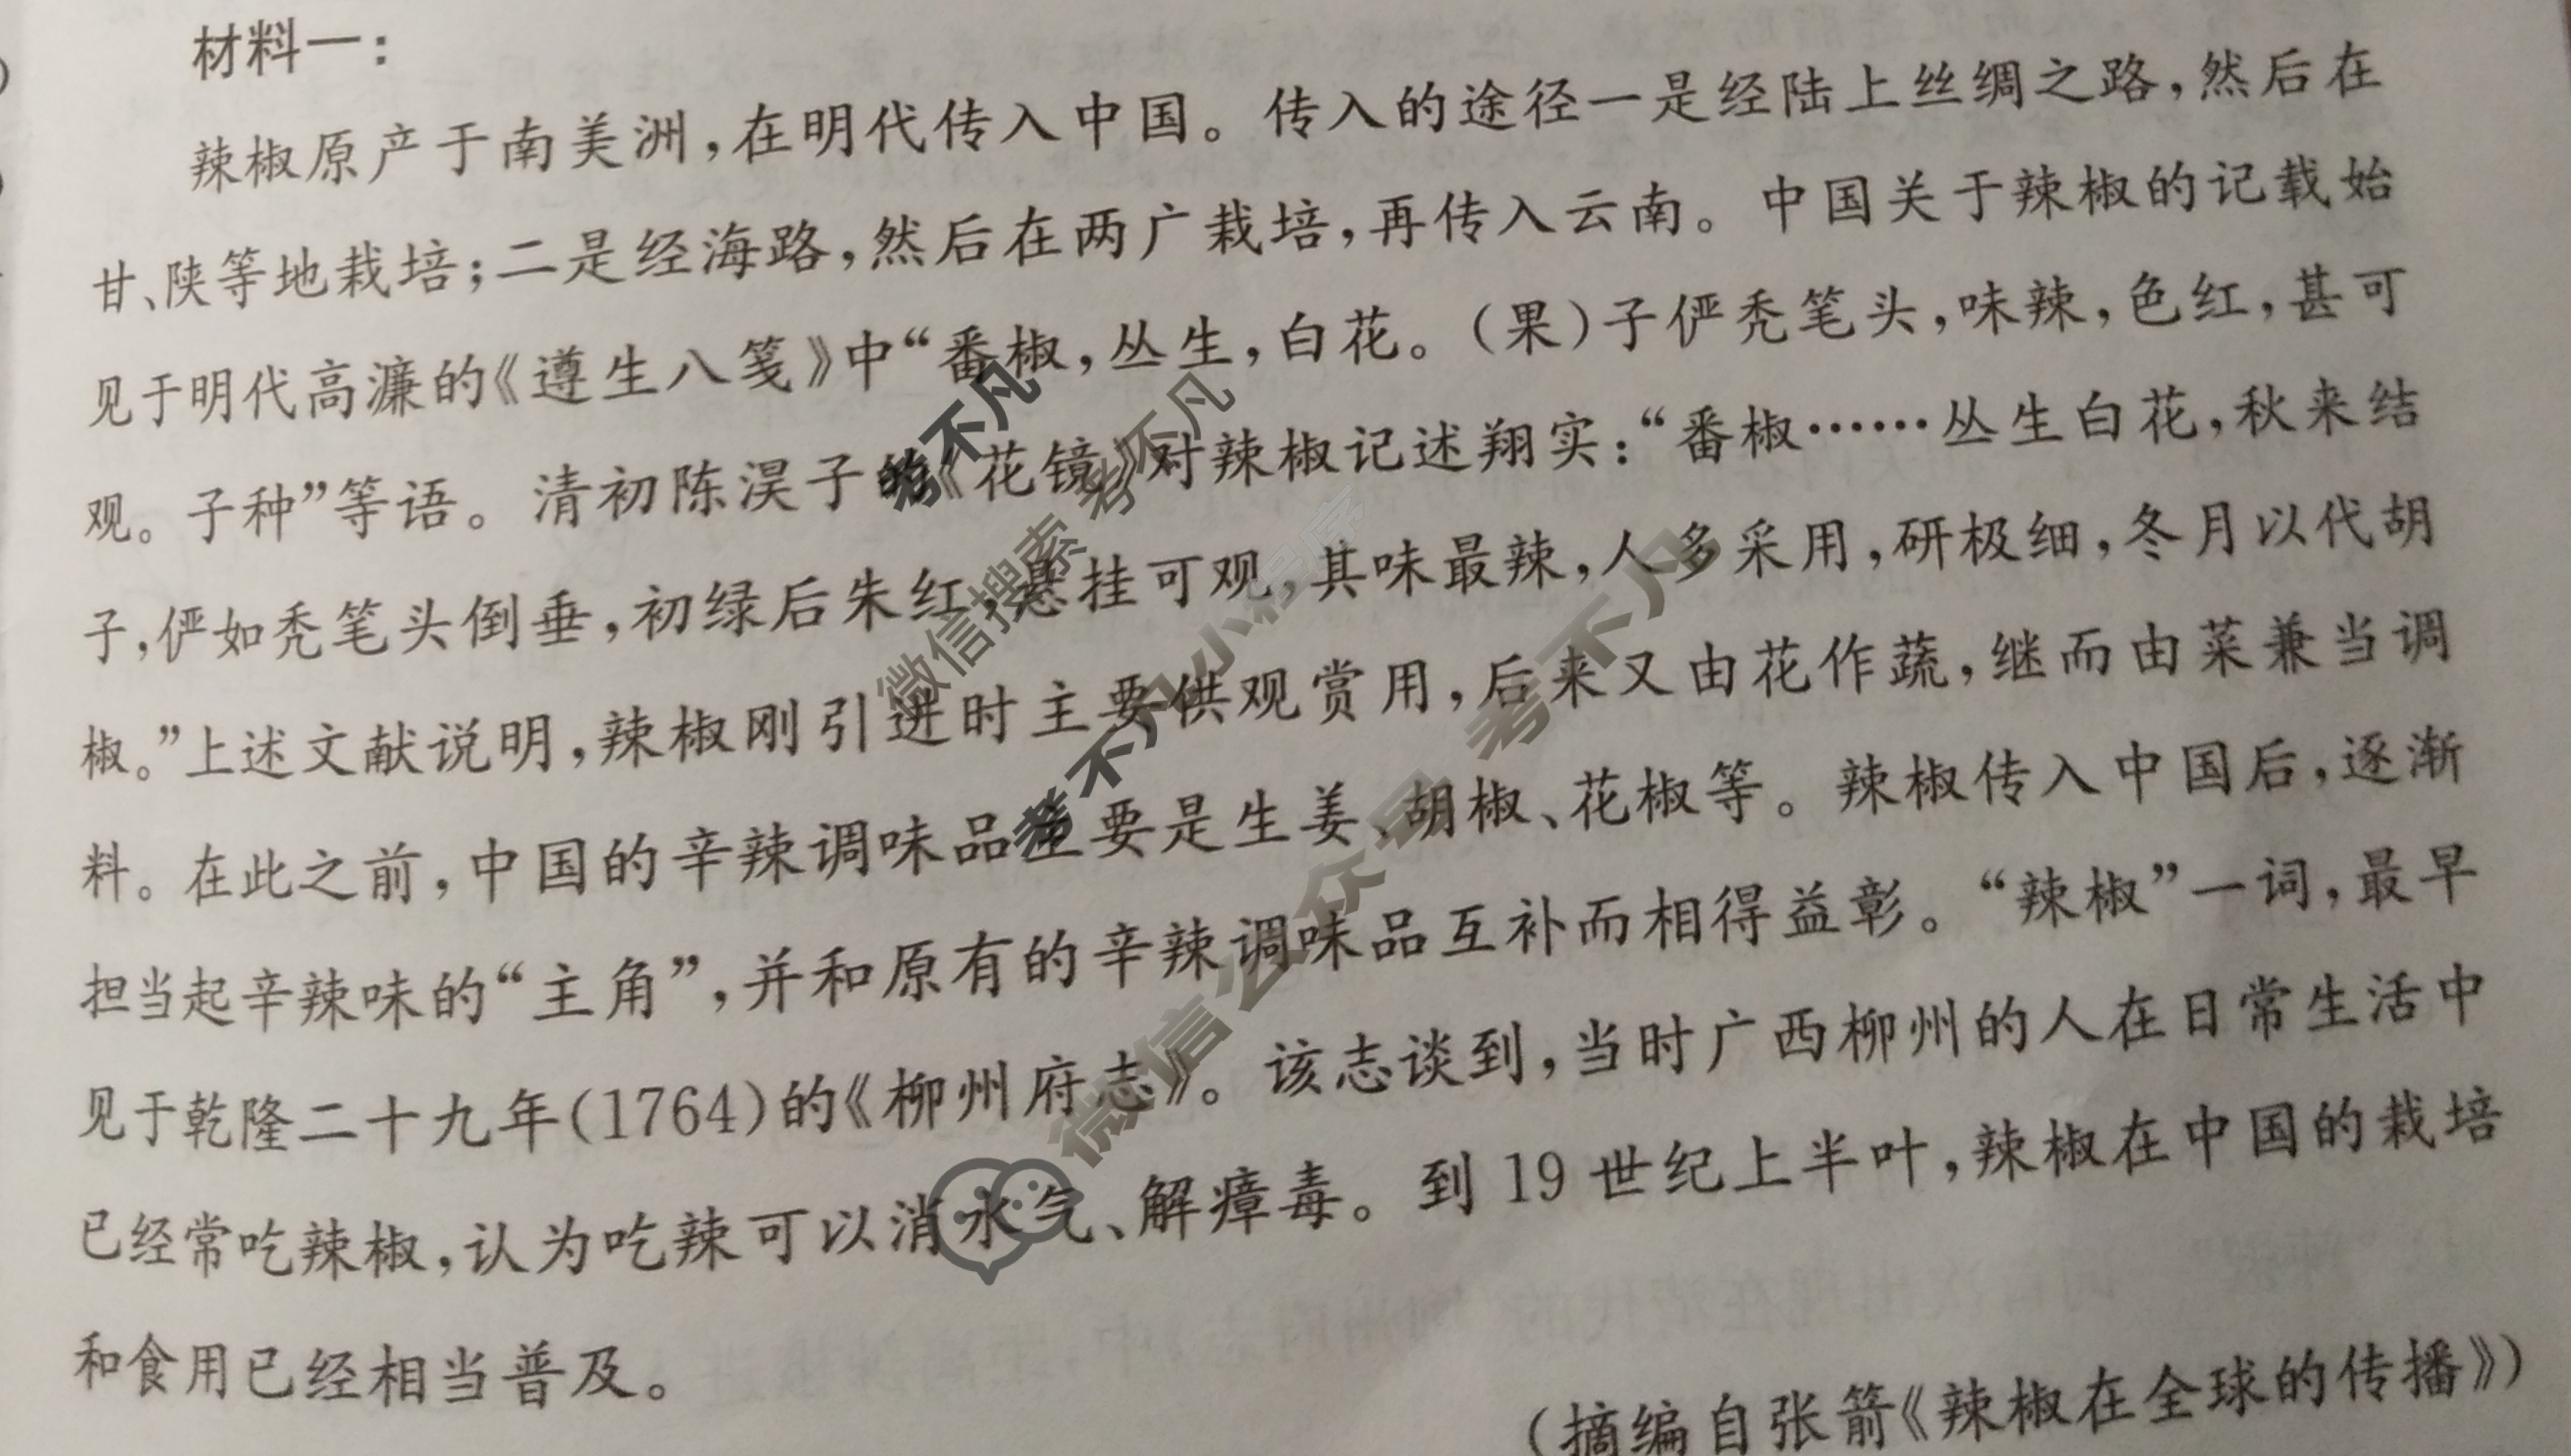 材料一：
辣椒原产于南美洲，在明代传入中国。传入的途径一是经陆上丝绸之路，然后在
甘、陕等地栽培；二是经海路，然后在两广栽培，再传入云南。中国关于辣椒的记载始
见于明代高濂的《遵生八笺》中“番椒，丛生，白花。（果）子俨秃笔头，味辣，色红，甚可
观。子种”等语。清初陈淏子的《花镜》对辣椒记述翔实：“番椒……丛生白花，秋来结
子，俨如秃笔头倒垂，初绿后朱红，悬挂可观，其味最辣，人多采用，研极细，冬月以代胡
椒。”上述文献说明，辣椒刚引进时主要供观赏用，后来又由花作蔬，继而由菜兼当调
料。在此之前，中国的辛辣调味品主要是生姜、胡椒、花椒等。辣椒传入中国后，逐渐
担当起辛辣味的“主角”，并和原有的辛辣调味品互补而相得益彰。“辣椒”一词，最早
见于乾隆二十九年(1764)的《柳州府志》。该志谈到，当时广西柳州的人在日常生活中
已经常吃辣椒，认为吃辣可以消水气、解瘴毒。到19世纪上半叶，辣椒在中国的栽培
和食用已经相当普及。
（摘编自张箭《辣椒在全球的传播》）
考不凡
微信搜索 考不凡
考不凡小程序
微信公众号 考不凡